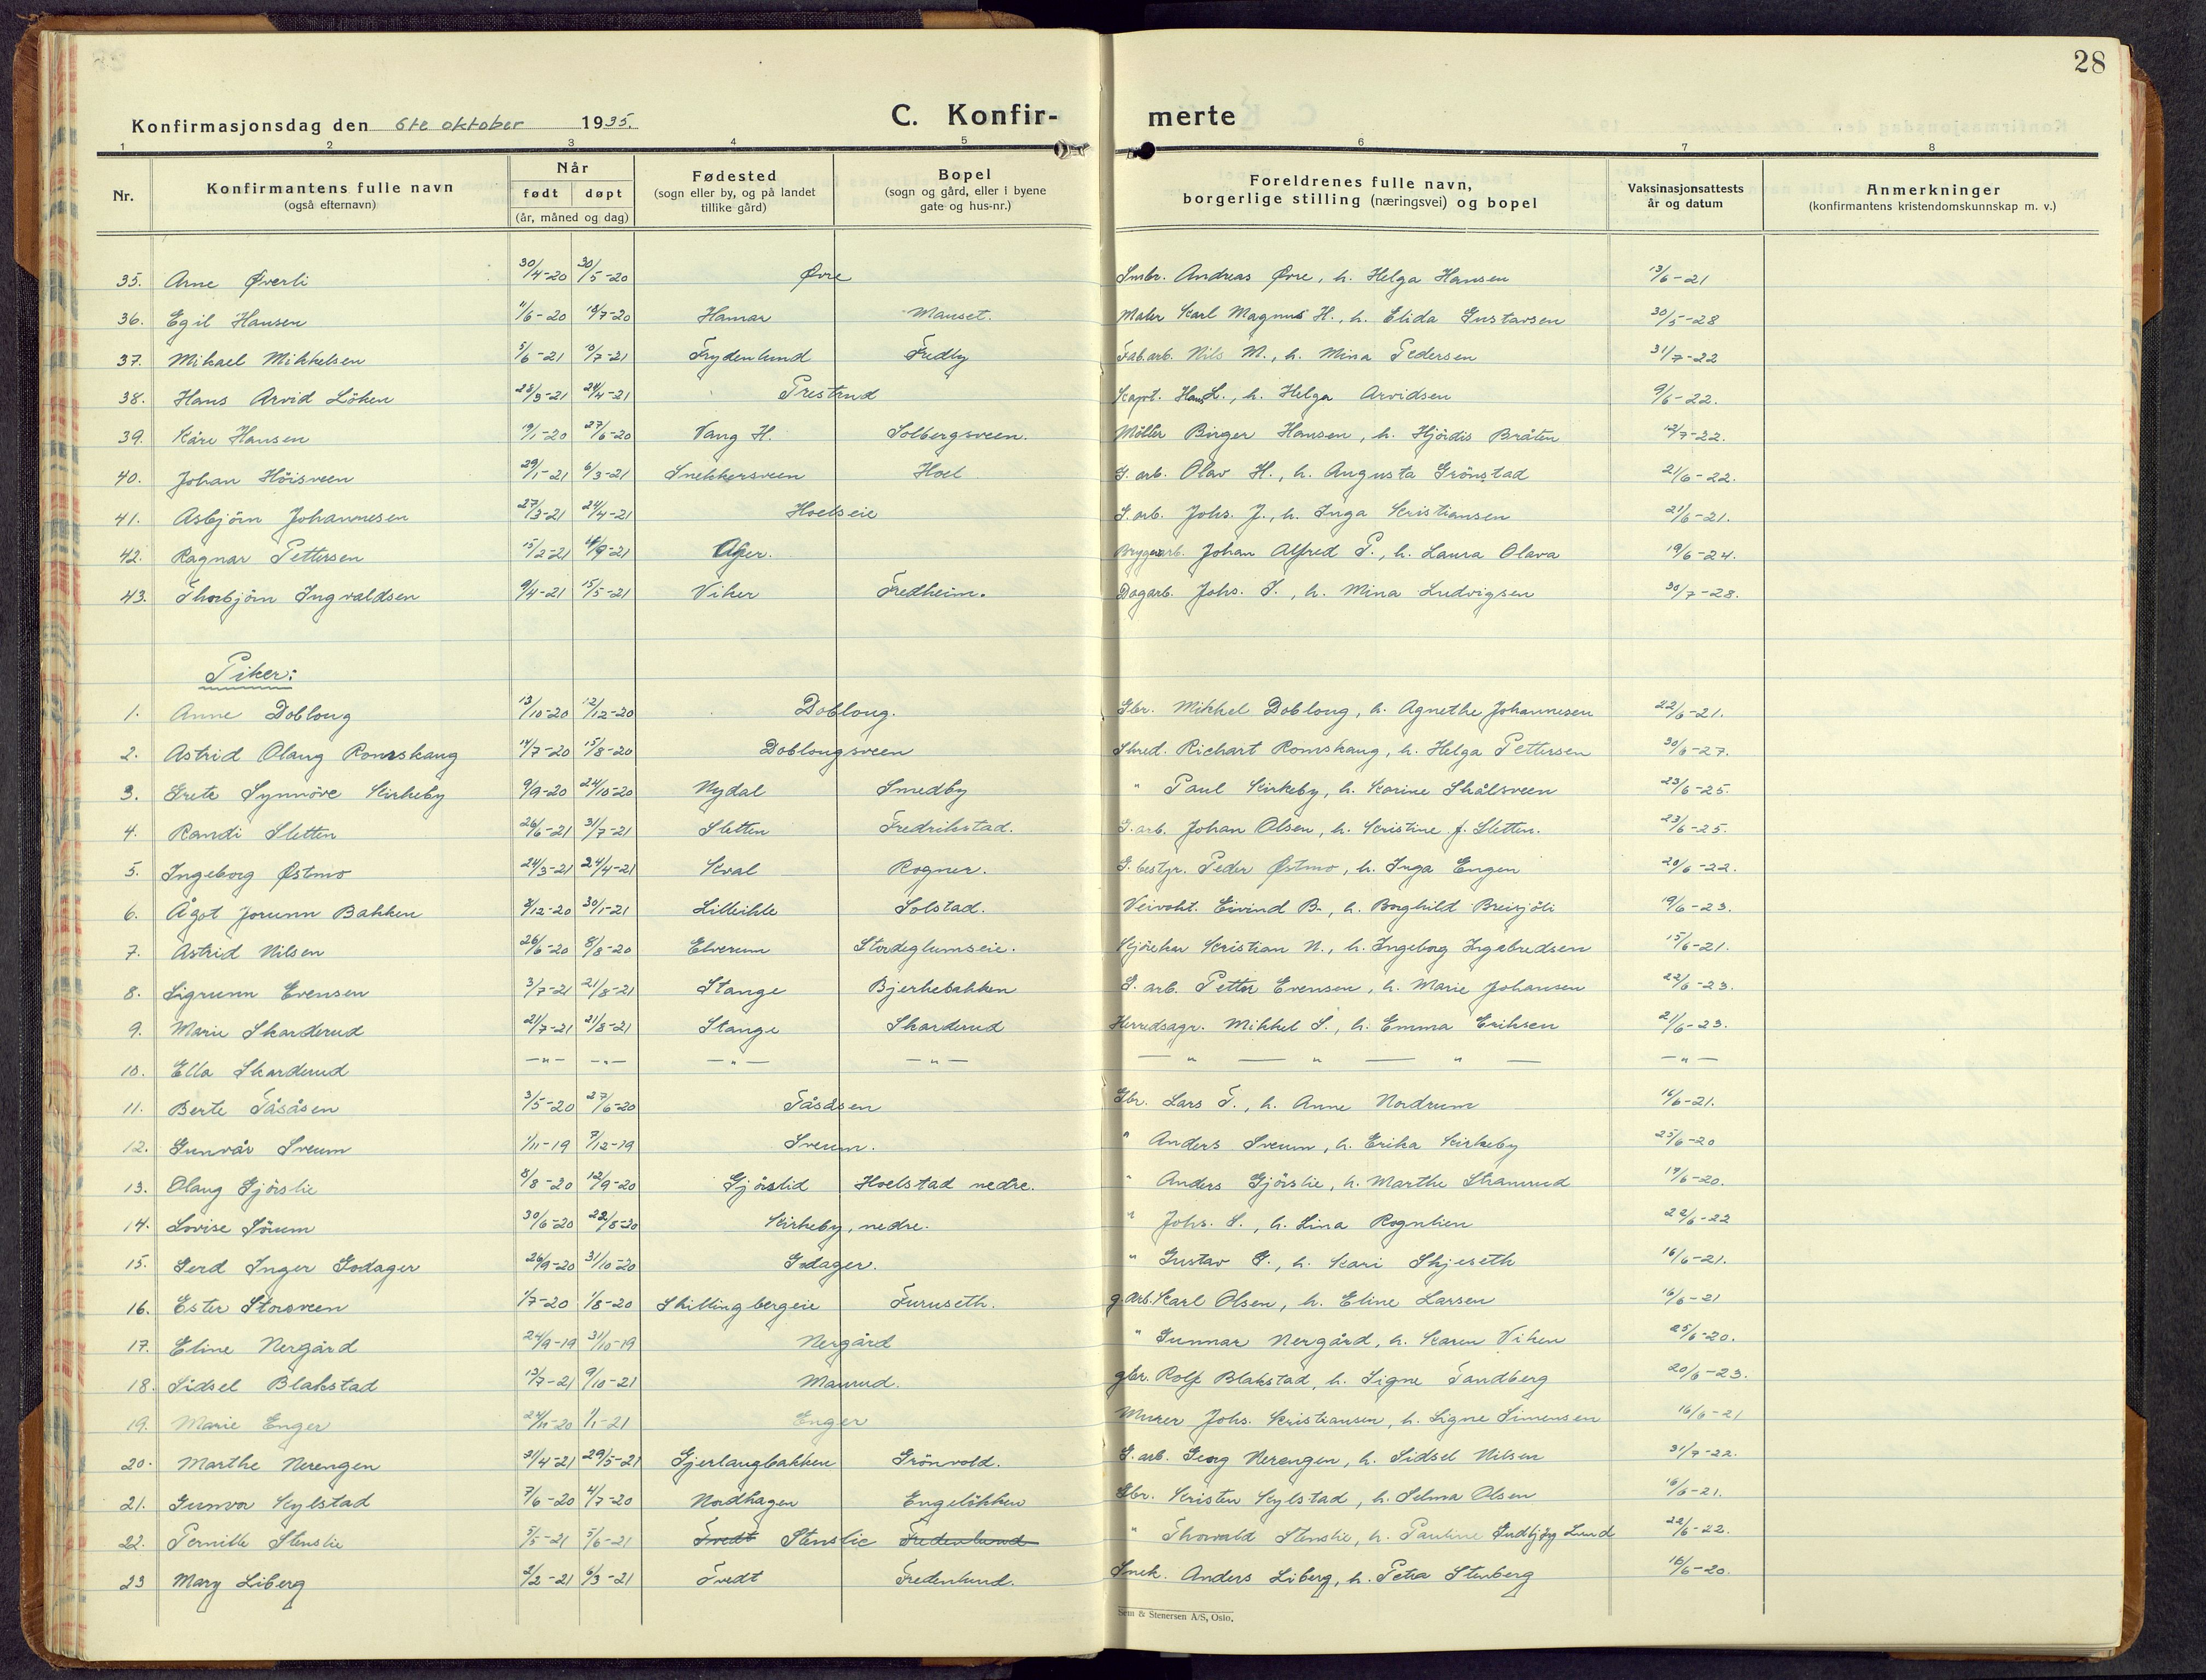 28
Konfirmasjonsdag den 6te oktober 1935. C. Konfir- merte
1 2 3 4 5 6 7 8
Nr. Konfirmantens fulle navn (også efternavn) Når født døpt (år, måned og dag) Fødested (sogn eller by, og på landet tillike gård) Bopel (sogn og gård, eller i byene gate og hus-nr.) Foreldrenes fulle navn, borgerlige stilling (næringsvei) og bopel Vaksinasjonsattests år og datum Anmerkninger (konfirmantens kristendomskunnskap m. v.)
35. Arne Øverli 30/4-20 30/5-20 Øvre Smbr. Andreas Øvre, h. Helga Hansen 13/6-21
36. Egil Hansen 11/6-20 18/7-20 Hamar Mauset. Maler Karl Magnus H., h. Elida Gustavsen 30/5-28
37. Mikael Mikkelsen 5/6-21 10/7-21 Frydenlund Fredly Fab.arb. Nils M., h. Mina Pedersen 31/7-22
38. Hans Arvid Löken 28/3-21 24/4-21 Prestrud Kapt. Hans L., h. Helga Arvidsen 9/6-22.
39. Kåre Hansen 19/1-20 27/6-20 Vang H. Solbergsveen. Möller Birger Hansen, h. Hjördis Bråten 12/7-22.
40. Johan Höisveen 29/1-21 6/3-21 Snekkersveen Hoel G. arb. Olav H., h. Augusta Grönstad 21/6-22.
41. Asbjörn Johannesen 27/3-21 24/4-21 Hoelseie G. arb. Johs. J., h. Inga Kristiansen 21/6-21.
42. Ragnar Pettersen 15/2-21 18/9-21 Aker. Bryggeriarb. Johan Alfred P., h. Laura Olava 19/6-24.
43. Thorbjörn Ingvaldsen 9/4-21 15/5-21 Viker Fredheim. Dagarb. Johs. I., h. Mina Ludvigsen 30/7-28.
Piker:
1. Anne Dobloug 13/10-20 12/12-20 Dobloug. Gbr. Mikkel Dobloug, h. Agnethe Johannesen 22/6-21.
2. Astrid Olaug Romskaug 14/7-20 15/8-20 Doblougsveen Skred. Richart Romskaug, h. Helga Pettersen 30/6-27.
3. Grete Synnöve Kirkeby 9/9-20 24/10-20 Nydal Smedby " Paul Kirkeby, h. Karine Skålsveen 23/6-25.
4. Randi Sletten 26/6-21 31/7-21 Sletten Fredrikstad. G. arb. Johan Olsen, h. Kristine f. Sletten. 23/6-25.
5. Ingeborg Østmo 24/3-21 24/4-21 Kval Rogner. G. bestyr. Peder Østmo, h. Inga Engen 20/6-22.
6. Ågot Jorunn Bakken 8/12-20 30/1-21 Lilleihle Solstad. Veivokt. Eivind B., h. Borghild Breisjöli 19/6-23.
7. Astrid Nilsen 26/6-20 8/8-20 Elverum Stordeglumseie. Kjörekar Kristian N., h. Ingeborg Ingebredsen 15/6-21.
8. Sigrunn Evensen 3/7-21 21/8-21 Stange Bjerkebakken G. arb. Petter Evensen, h. Marie Johansen 22/6-23.
9. Marie Skarderud 21/7-21 21/8-21 Stange Skarderud Herredsagr. Mikkel S., h. Emma Eriksen 21/6-23.
10. Ella Skarderud —"— —"— —"— —"— — " — " — " — —"—
11. Berte Tåsåsen 3/5-20 27/6-20 Tåsåsen Gbr. Lars T., h. Anne Nordrum 16/6-21.
12. Gunvår Sveum 1/11-19 7/12-19 Sveum. " Anders Sveum, h. Erika Kirkeby 25/6-20
13. Olaug Gjörslie 8/8-20 12/9-20 Gjörslid Hoelstad nedre. " Anders Gjörslie, h. Marthe Skamrud 17/6-20.
14. Lovise Sörum 30/6-20 22/8-20 Kirkeby, nedre. " Johs. S., h. Lina Rognlien 22/6-22
15. Gerd Inger Godager 26/9-20 31/10-20 Godager. " Gustav G., h. Kari Skjeseth 16/6-21.
16. Ester Storsveen 1/7-20 1/8-20 Skillingbergeie Furuseth. g. arb. Karl Olsen, h. Eline Larsen 16/6-21
17. Eline Nergård 24/9-19 31/10-19 Nergård " Gunnar Nergård, h. Karen Viken 25/6-20.
18. Sidsel Blakstad 13/7-21 9/10-21 Maurud. gbr. Rolf Blakstad, h. Signe Sandberg 20/6-23.
19. Marie Enger 24/11-20 1/1-21 Enger Murer Johs. Kristiansen, h. Signe Simensen 16/6-21
20. Marthe Nerengen 21/4-21 29/5-21 Gjerlaugbakken Grönvold. G. arb. Georg Nerengen, h. Sidsel Nilsen 31/7-22.
21. Gunvor Kylstad 7/6-20 4/7-20 Nordhagen Engelökken Gbr. Kristen Kylstad, h. Selma Olsen 16/6-21.
22. Pernille Stenslie 5/5-21 5/6-21 Tvedt Stenslie Fredenlund " Thorvald Stenslie, h. Pauline Gudbjörg Lund 22/6-22.
23 Mary Liberg 2/2-21 6/3-21 Tvedt Fredenlund. Snek. Anders Liberg, h. Petra Stenberg 16/6-20.
Sem & Stenersen A/S, Oslo.